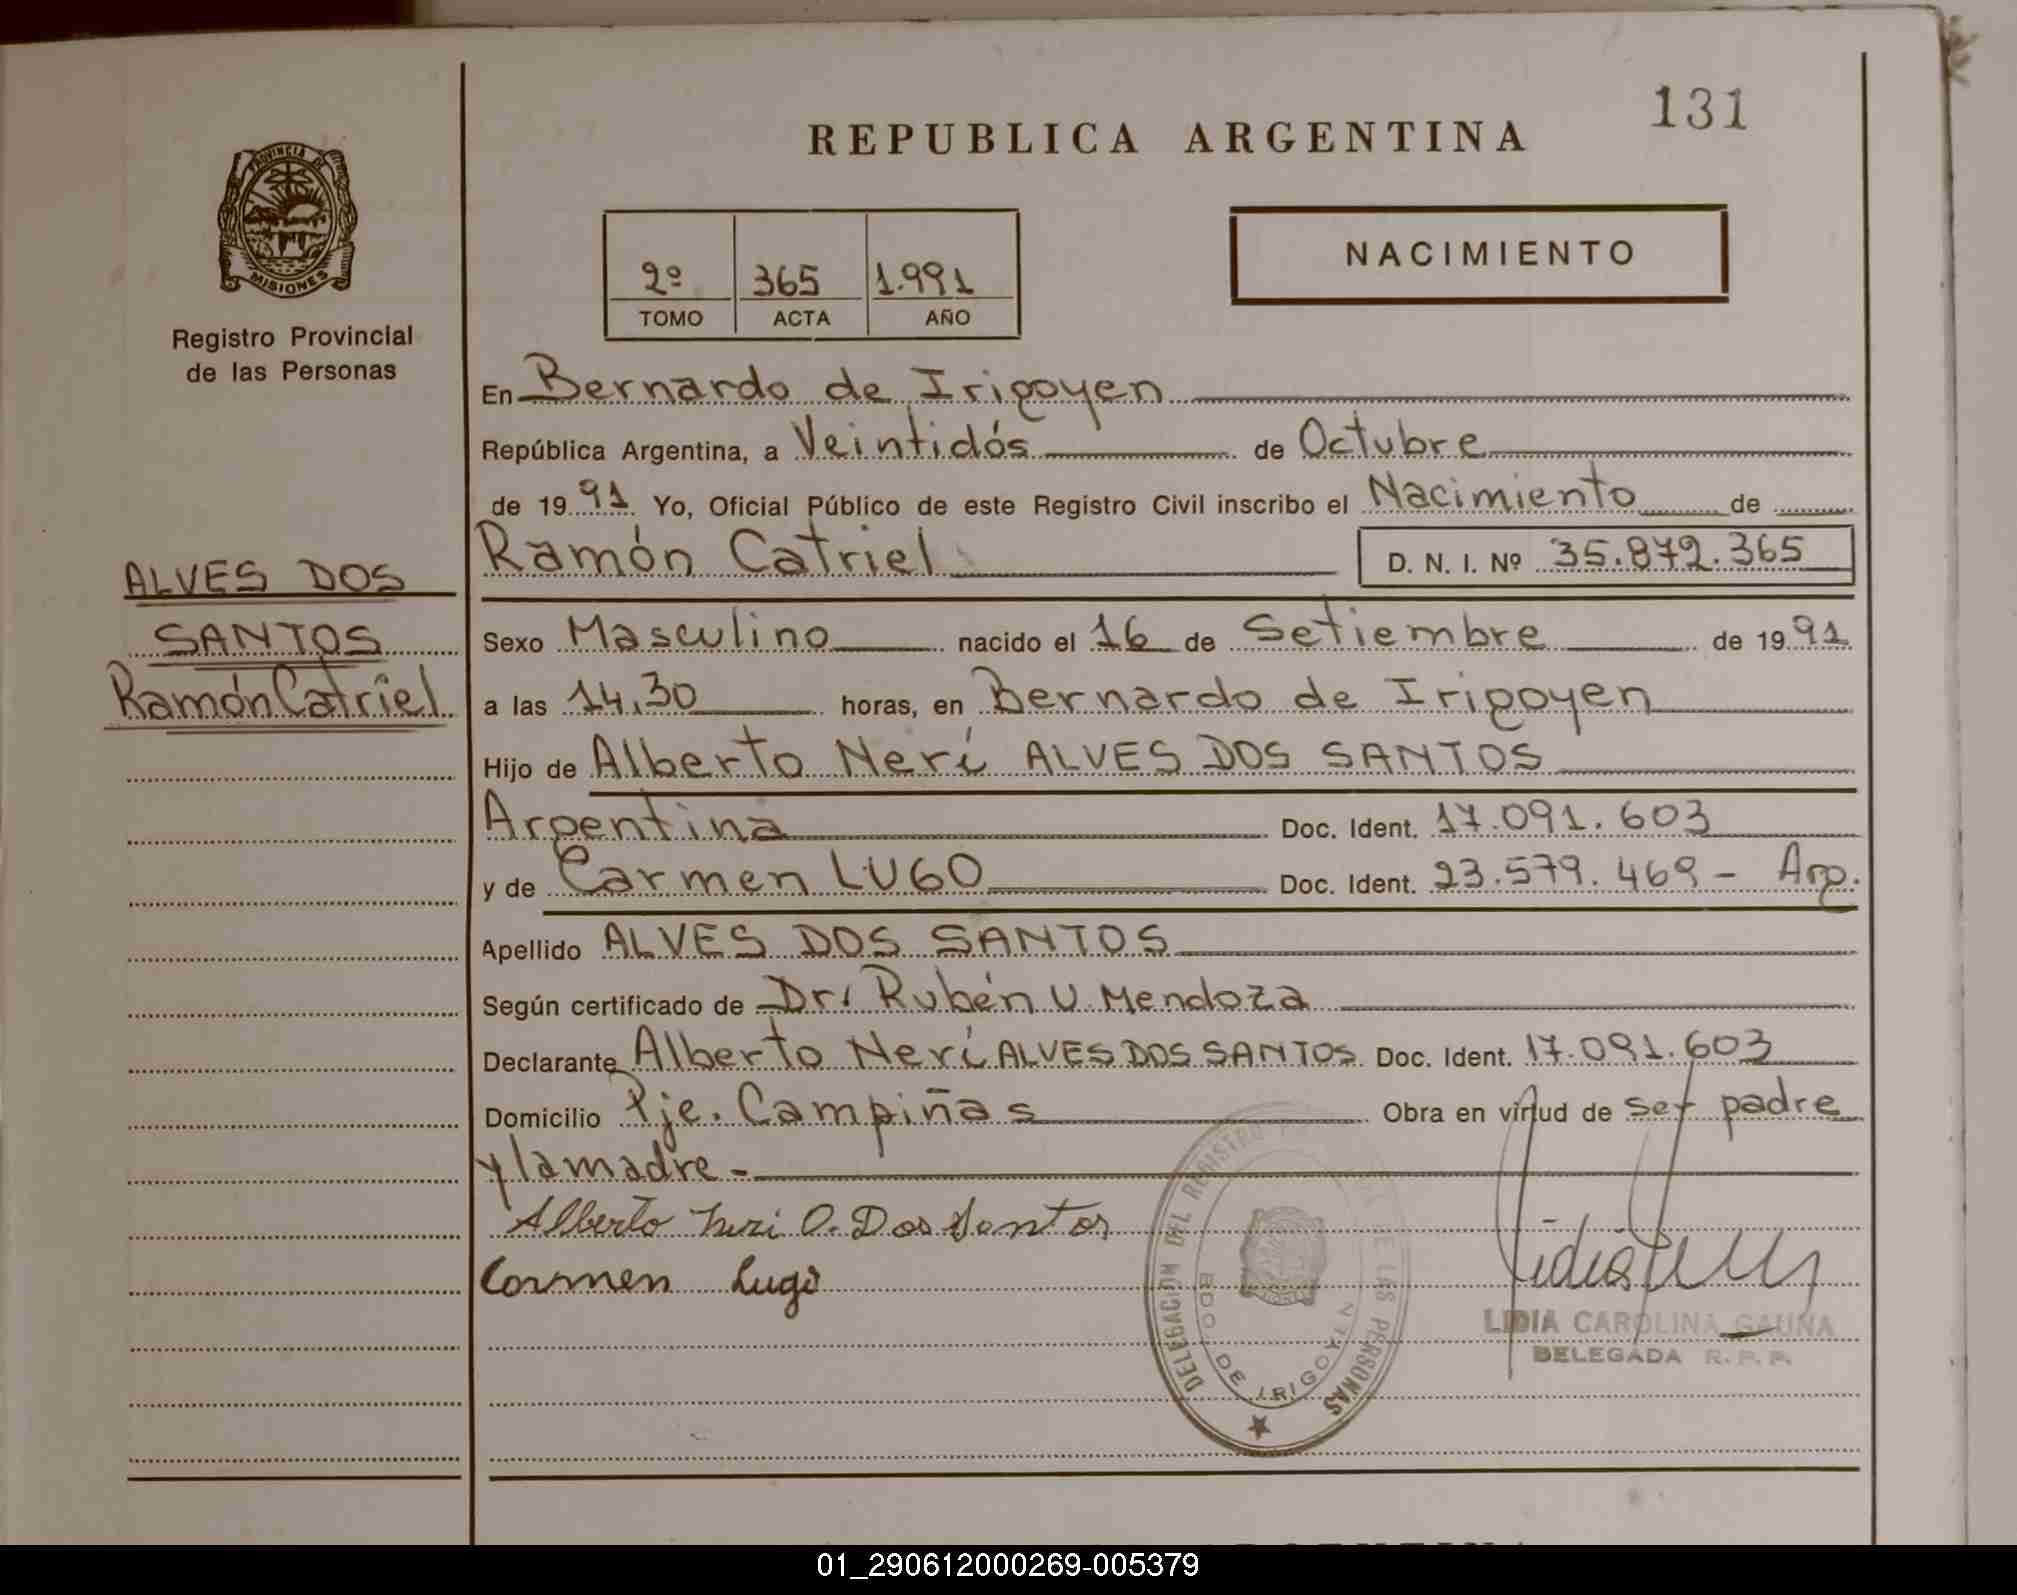 131
REPUBLICA ARGENTINA
PROVINCIA DE
MISIONES
NACIMIENTO
2º 365 1.991
TOMO ACTA AÑO
Registro Provincial
de las Personas
En Bernardo de Irigoyen
República Argentina, a Veintidós de Octubre
de 19 91 Yo, Oficial Público de este Registro Civil inscribo el Nacimiento de
Ramón Catriel D. N. I. Nº 35.872.365
ALVES DOS
SANTOS
Ramón Catriel
Sexo Masculino nacido el 16 de Setiembre de 19 91
a las 14,30 horas, en Bernardo de Irigoyen
Hijo de Alberto Neri ALVES DOS SANTOS
Argentina Doc. Ident. 17.091.603
y de Carmen LUGO Doc. Ident. 23.579.469 - Arg.
Apellido ALVES DOS SANTOS
Según certificado de Dr. Rubén U. Mendoza
Declarante Alberto Neri ALVES DOS SANTOS Doc. Ident. 17.091.603
Domicilio Pje. Campiñas Obra en virtud de ser padre
y la madre -
Alberto Neri A. Dos Santos
Carmen Lugo
DELEGACION DEL REGISTRO DE LAS PERSONAS
BDO. DE IRIGOYEN
LIDIA CAROLINA GAUNA
DELEGADA R. P. P.
01_290612000269-005379